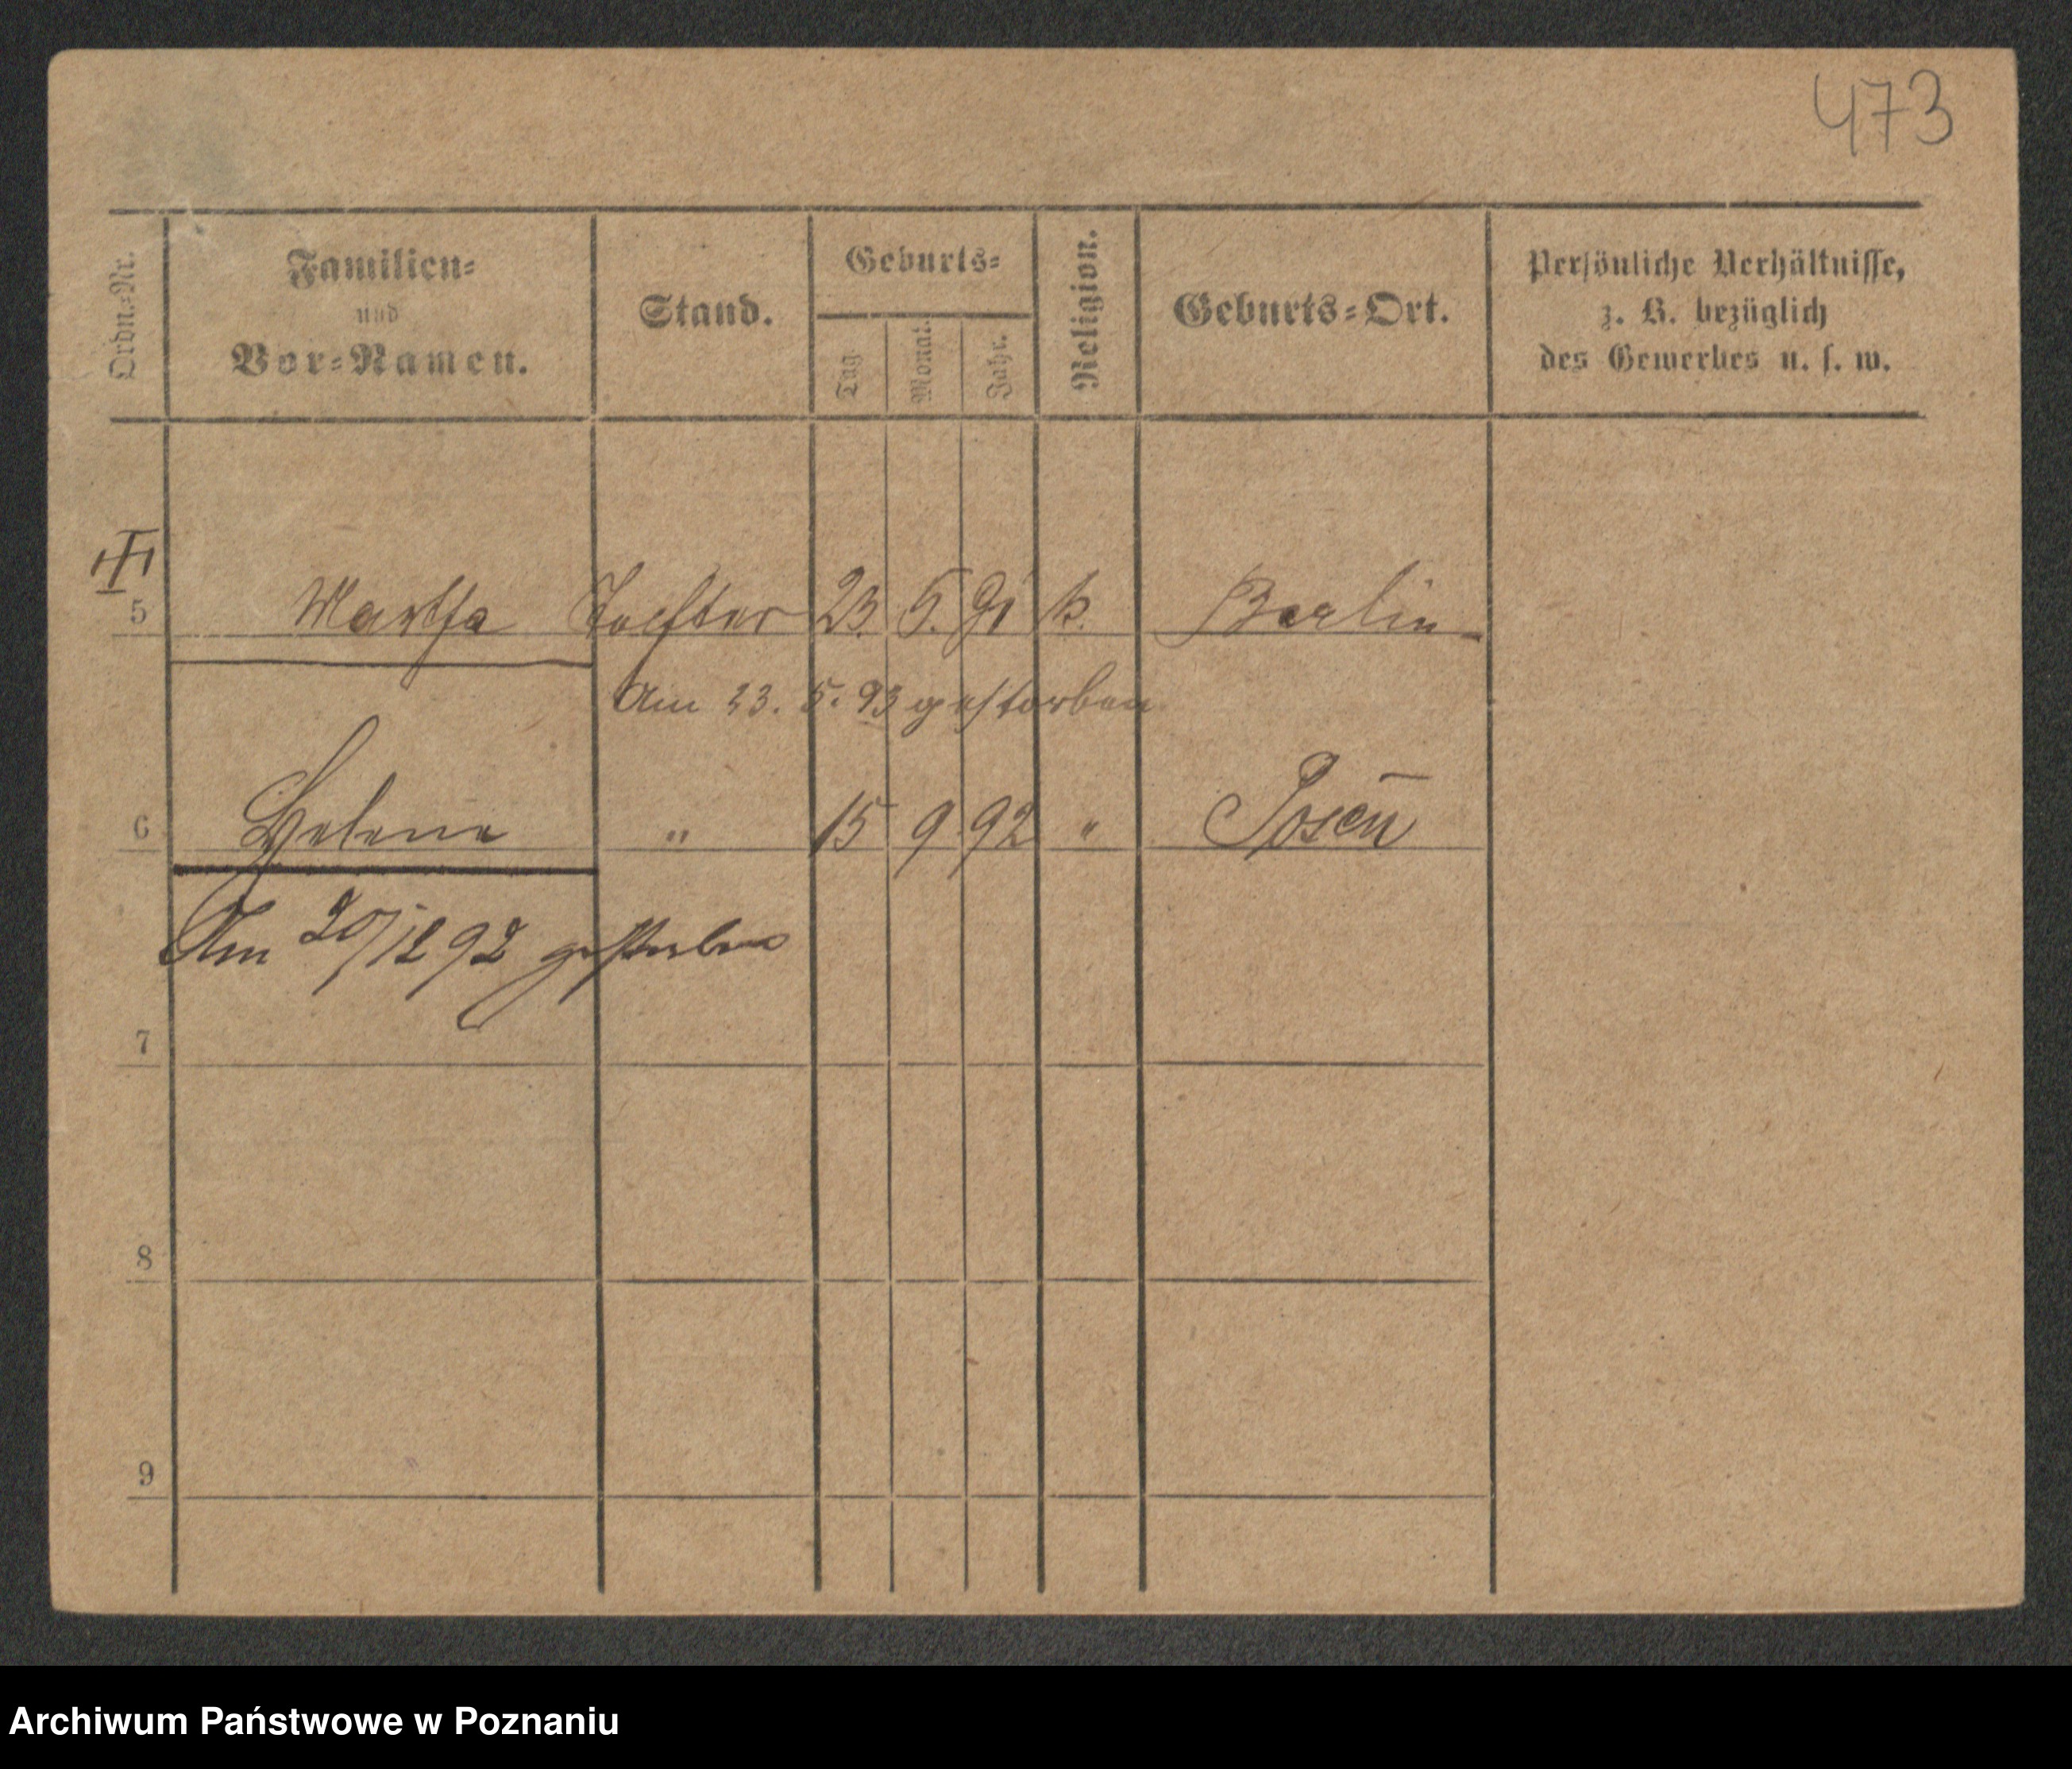 473
Ordn.=Nr.
Familien=
und
Vor=Namen.
Stand.
Geburts=
Tag.
Monat.
Jahr.
Religion.
Geburts=Ort.
Persönliche Verhältnisse,
z. B. bezüglich
des Gewerbes u. s. w.
5 Martha Tochter 23. 5. 91 k. Berlin
Am 23. 5. 93 gestorben
6 Helene " 15 9 92 " Posen
Am 20/12 92 gestorben
7
8
9
Archiwum Państwowe w Poznaniu